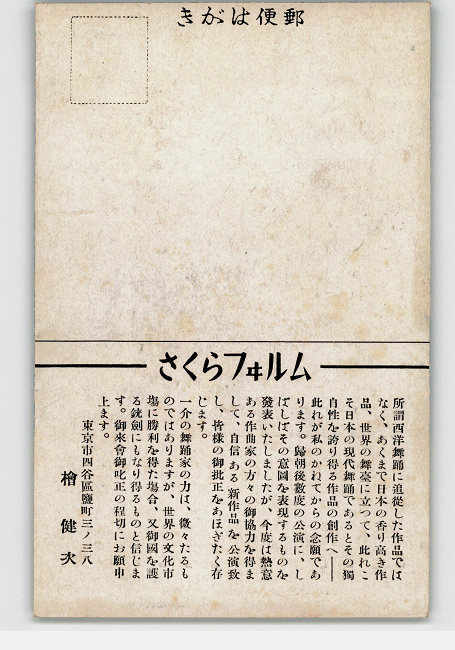 郵便はがき
さくらフヰルム
所謂西洋舞踊に追從した作品では
なく、あくまで日本の香り高き作
品、世界の舞臺に立つて、此れこ
そ日本の現代舞踊であるとその獨
自性を誇り得る作品の創作へ――
此れが私のかねてからの念願であ
ります。歸朝後數度の公演に、し
ばしばその意圖を表現するものを
發表いたしましたが、今度は熱意
ある作曲家の方々の御協力を得ま
して、自信ある新作品を公演致
し、皆樣の御批正をあほぎたく存
じます。
一介の舞踊家の力は、微々たるも
のではありますが、世界の文化市
場に勝利を得た場合、又御國を護
る銃劍にもなり得るものと信じま
す。御來會御叱正の程切にお願申
上ます。
東京市四谷區鹽町三ノ三八
檜健次